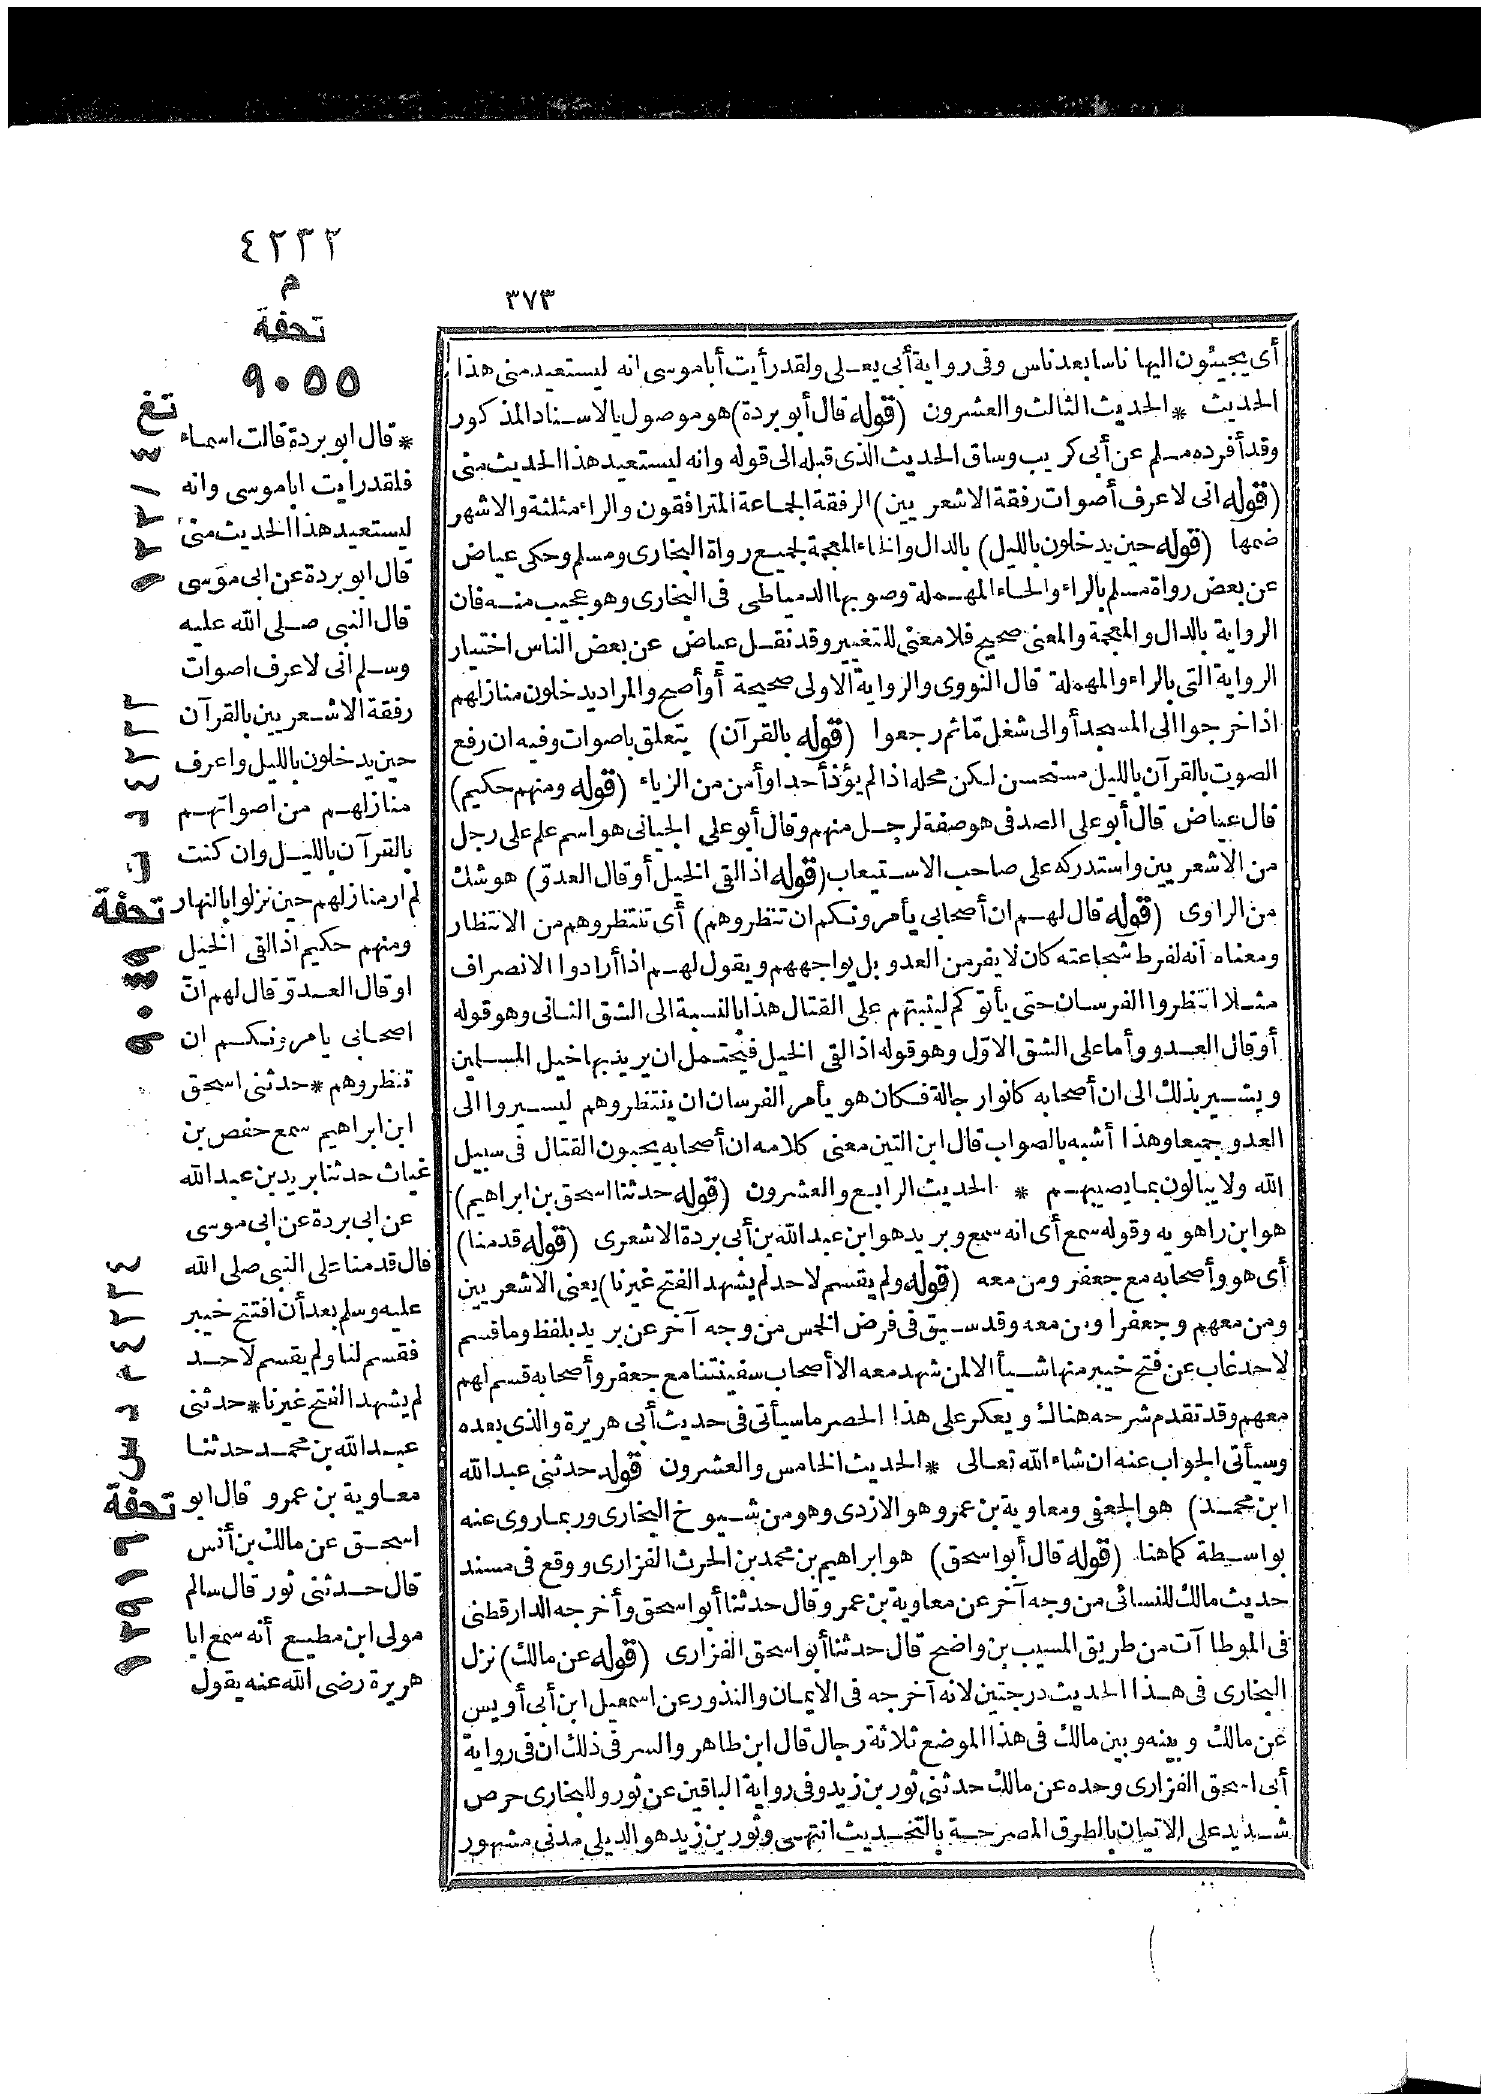 ٤٢٣٢
م
تحفة
٩٠٥٥
٣٧٣
أى يجيئون اليها ناسا بعد ناس وفى رواية أبى يعلى ولقد رأيت أبا موسى انه ليستعيد منى هذا
الحديث * الحديث الثالث والعشرون (قوله قال أبو بردة) هو موصول بالاسناد المذكور
وقد أفرده مسلم عن أبى كريب وساق الحديث الذى قبله الى قوله وانه ليستعيد هذا الحديث منى
(قوله انى لاعرف أصوات رفقة الاشعريين) الرفقة الجماعة المترافقون والراء مثلثة والاشهر
ضمها (قوله حين يدخلون بالليل) بالدال والخاء المعجمة لجميع رواة البخارى ومسلم وحكى عياض
عن بعض رواة مسلم بالراء والحاء المهملة وصوبها الدمياطى فى البخارى وهو عجيب منه فان
الرواية بالدال والمعجمة والمعنى صحيح فلا معنى للتغيير وقد نقل عياض عن بعض الناس اختيار
الرواية التى بالراء والمهملة قال النووى والرواية الاولى صحيحة أو أصح والمراد يدخلون منازلهم
اذا خرجوا الى المسجد أو الى شغل مّا ثم رجعوا (قوله بالقرآن) يتعلق باصوات وفيه ان رفع
الصوت بالقرآن بالليل مستحسن لكن محله اذا لم يؤذ أحدا وأمن من الرياء (قوله ومنهم حكيم)
قال عياض قال أبو على الصدفى هو صفة لرجل منهم وقال أبو على الجيانى هو اسم علم على رجل
من الاشعريين واستدركه على صاحب الاستيعاب (قوله اذا لقى الخيل أو قال العدوّ) هو شك
من الراوى (قوله قال لهم ان أصحابى يأمرونكم ان تنظروهم) أى تنتظروهم من الانتظار
ومعناه أنه لفرط شجاعته كان لا يفر من العدو بل يواجههم ويقول لهم اذا أرادوا الانصراف
مثلا انتظروا الفرسان حتى يأتوكم ليثبتهم على القتال هذا بالنسبة الى الشق الثانى وهو قوله
أو قال العدو وأما على الشق الاوّل وهو قوله اذا لقى الخيل فيحتمل ان يريد بها خيل المسلمين
ويشير بذلك الى ان أصحابه كانوا رجالة فكان هو يأمر الفرسان ان ينتظروهم ليسيروا الى
العدو جميعا وهذا أشبه بالصواب قال ابن التين معنى كلامه ان أصحابه يحبون القتال فى سبيل
الله ولا يبالون بما يصيبهم * الحديث الرابع والعشرون (قوله حدثنا اسحق بن ابراهيم)
هو ابن راهويه وقوله سمع أى انه سمع وبريد هو ابن عبد الله بن أبى بردة الاشعرى (قوله قدمنا)
أى هو وأصحابه مع جعفر ومن معه (قوله ولم يقسم لاحد لم يشهد الفتح غيرنا) يعنى الاشعريين
ومن معهم وجعفرا ومن معه وقد سبق فى فرض الخمس من وجه آخر عن بريد بلفظ وما قسم
لاحد غاب عن فتح خيبر منها شيأ الا لمن شهد معه الا أصحاب سفينتنا مع جعفر وأصحابه قسم لهم
معهم وقد تقدم شرحه هناك ويعكر على هذا الحصر ما سيأتى فى حديث أبى هريرة والذى بعده
وسيأتى الجواب عنه ان شاء الله تعالى * الحديث الخامس والعشرون قوله حدثنى عبد الله
ابن محمد) هو الجعفى ومعاوية بن عمرو هو الازدى وهو من شيوخ البخارى وربما روى عنه
بواسطة كما هنا (قوله قال أبو اسحق) هو ابراهيم بن محمد بن الحرث الفزارى ووقع فى مسند
حديث مالك للنسائى من وجه آخر عن معاوية بن عمرو قال حدثنا أبو اسحق وأخرجه الدارقطنى
فى الموطآت من طريق المسيب بن واضح قال حدثنا أبو اسحق الفزارى (قوله عن مالك) نزل
البخارى فى هذا الحديث درجتين لانه أخرجه فى الايمان والنذور عن اسمعيل ابن أبى أويس
عن مالك وبينه وبين مالك فى هذا الموضع ثلاثة رجال قال ابن طاهر والسر فى ذلك ان فى رواية
أبى اسحق الفزارى وحده عن مالك حدثنى ثور بن زيد وفى رواية الباقين عن ثور وللبخارى حرص
شديد على الاتيان بالطرق المصرحة بالتحديث انتهى وثور بن زيد هو الديلى مدنى مشهور
تغ
* قال ابو بردة قالت اسماء
فلقد رايت ابا موسى وانه
ليستعيد هذا الحديث منى
قال ابو بردة عن ابى موسى
قال النبى صلى الله عليه
وسلم انى لاعرف اصوات
رفقة الاشعريين بالقرآن
حين يدخلون بالليل واعرف
منازلهم من اصواتهم
بالقرآن بالليل وان كنت
لم ار منازلهم حين نزلوا بالنهار
ومنهم حكيم اذا لقى الخيل
او قال العدوّ قال لهم انّ
اصحابى يامرونكم ان
تنظروهم * حدثنى اسحق
ابن ابراهيم سمع حفص بن
غياث حدثنا بريد بن عبد الله
عن ابى بردة عن ابى موسى
قال قدمنا على النبى صلى الله
عليه وسلم بعد أن افتتح خيبر
فقسم لنا ولم يقسم لاحد
لم يشهد الفتح غيرنا * حدثنى
عبد الله بن محمد حدثنا
معاوية بن عمرو قال ابو
اسحق عن مالك بن أنس
قال حدثنى ثور قال سالم
مولى ابن مطيع أنه سمع ابا
هريرة رضى الله عنه يقول
تحفة
تحفة